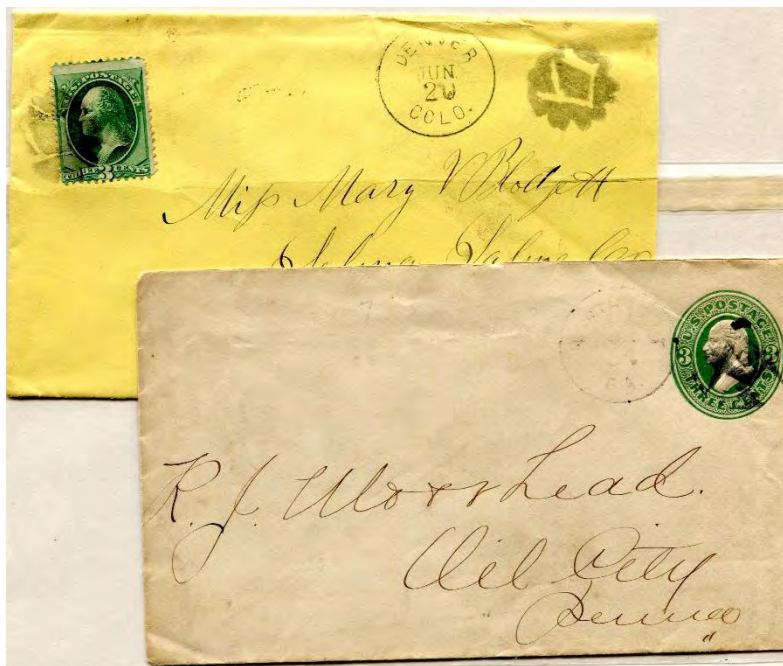 U.S. POSTAGE
THREE 3 CENTS
DENVER
JUN.
20
COLO.
Miss Mary V Blodgett
Selma Saline Co
U.S. POSTAGE
3
THREE CENTS
R. J. Moorhead.
Oil City
Penna